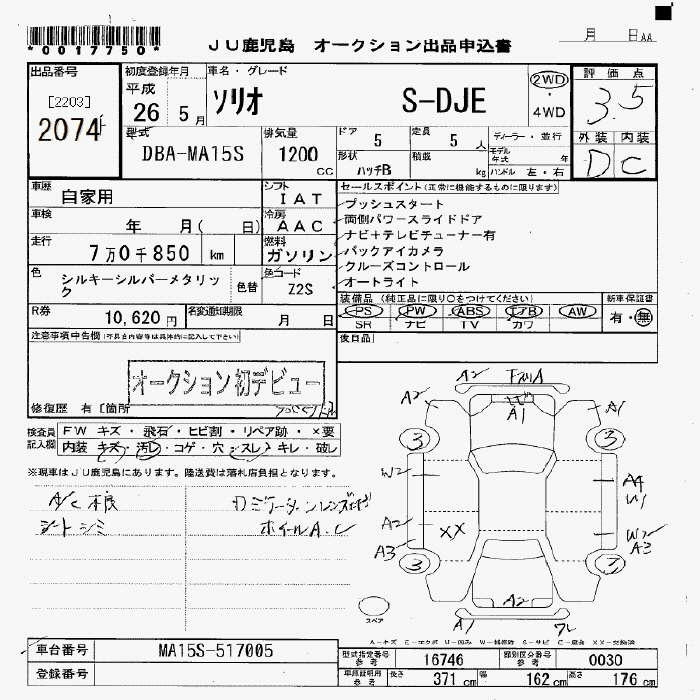 *0017750*
月 日 AA
JU鹿児島 オークション出品申込書
出品番号
[2203]
2074
初度登録年月
平成
26 5月
車名・グレード
ソリオ S-DJE
2WD
・
4WD
評価点
3.5
外装 内装
D C
型式
DBA-MA15S
排気量
1200
cc
ドア
5
定員
5 人
形状
ハッチB
積載
kg
ディーラー・並行
モデル年式 年
ハンドル 左・右
車歴
自家用
シフト
IAT
車検
年 月( 日)
冷房
AAC
走行
7万0千850 km
燃料
ガソリン
色
シルキーシルバーメタリック
色替
色コード
Z2S
セールスポイント(正常に機能するものに限ります)
プッシュスタート
両側パワースライドドア
ナビ+テレビチューナー有
バックアイカメラ
クルーズコントロール
オートライト
R券
10,620円
名変通知期限
月 日
装備品(純正品に限り○をつけてください)
PS PW ABS エアB AW
SR ナビ TV カワ
新車保証書
有・無
後日品
注意事項申告欄(不具合内容等は具体的に記入して下さい)
オークション初デビュー
修復歴 有 [箇所
検査員記入欄
FW キズ・飛石・ヒビ割・リペア跡・×要
内装 キズ・汚レ・コゲ・穴・スレ・キレ・破レ
※現車はJU鹿児島にあります。陸送費は落札店負担となります。
シートシミ
ホイールA.C
A2
A2
A1
A1
3
3
W2
A4
W1
A2
XX
W2
A3
A3
3
A2
A1
スペア
A-キズ E-エクボ U-凹み W-補修跡 S-サビ C-腐食 XX-交換済
車台番号
MA15S-517005
登録番号
型式指定番号
参考
16746
類別区分番号
参考
0030
車庫証明用
参考
長さ
371 cm
幅
162 cm
高さ
176 cm